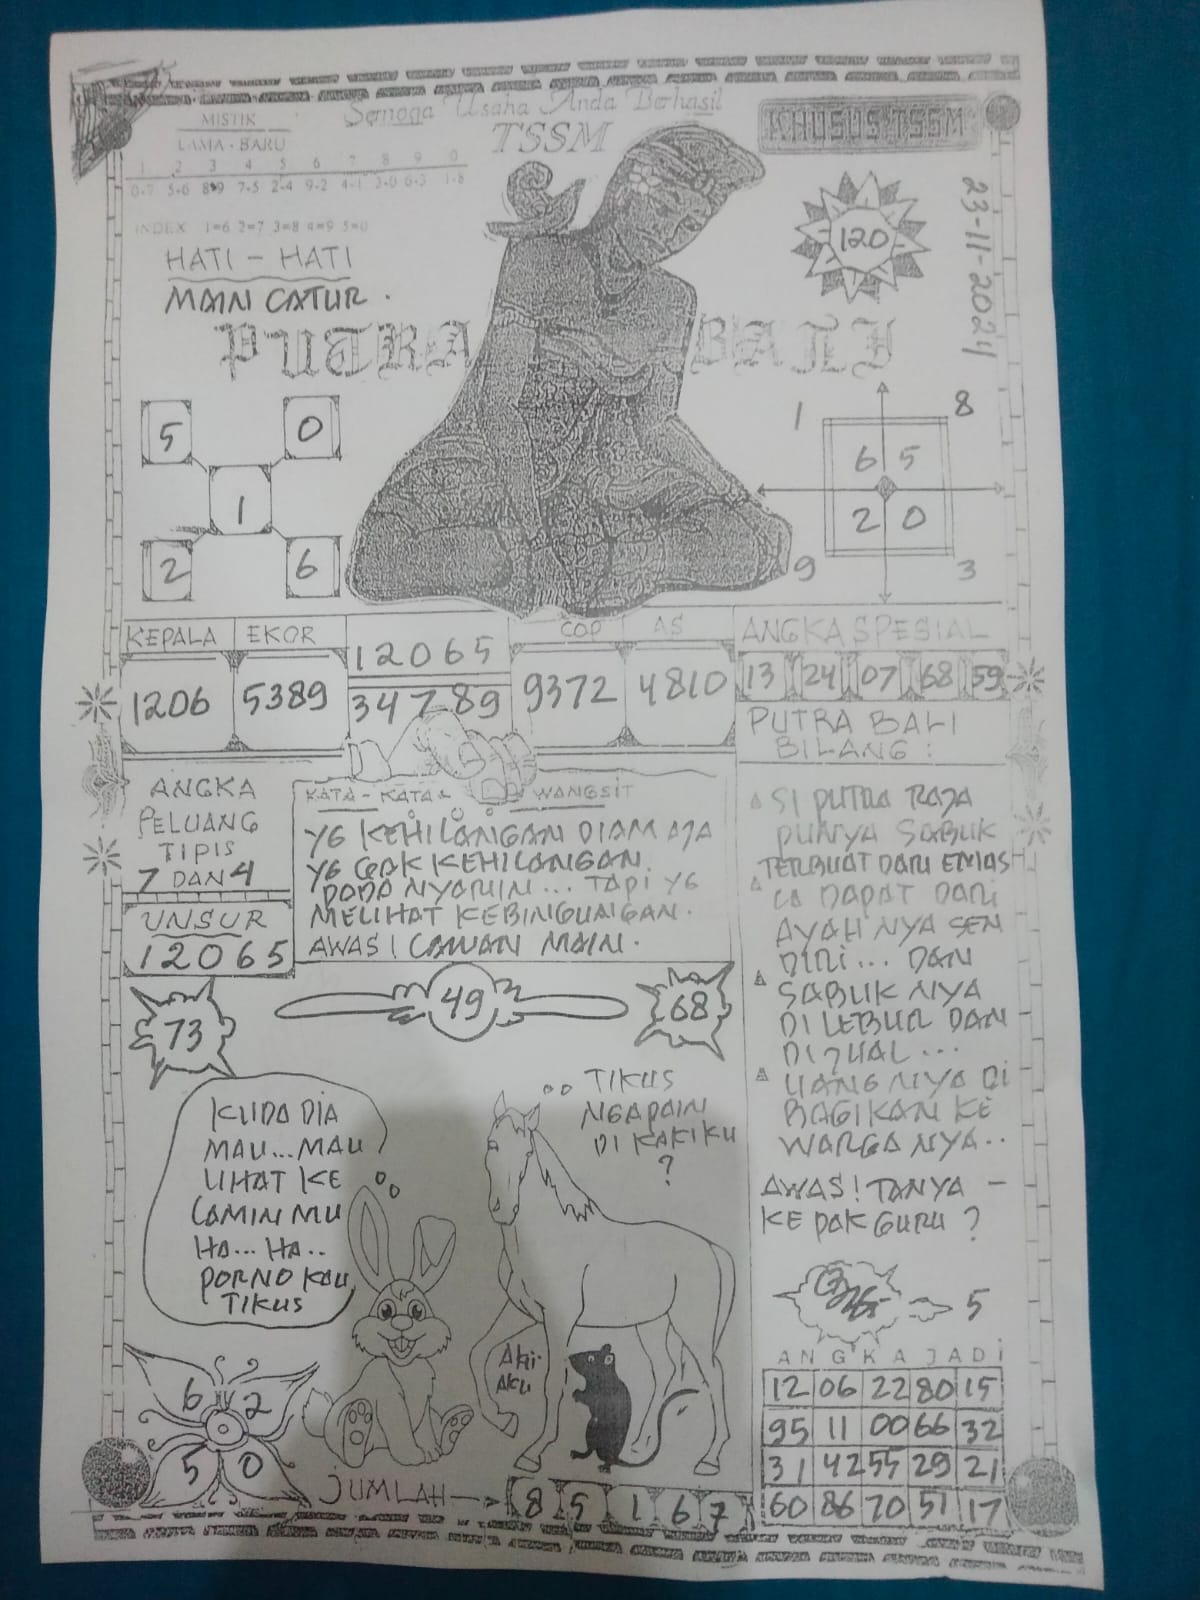 Semoga Usaha Anda Berhasil
TSSM
KHUSUS TSSM
MISTIK
LAMA - BARU
1 2 3 4 5 6 7 8 9 0
0-7 5-6 8-9 7-5 2-4 9-2 4-1 3-0 6-3 1-8
INDEX 1=6 2=7 3=8 4=9 5=0
HATI - HATI
MAIN CATUR.
120
23-11-2024
PUTRA BALI
5 0
1
2 6
1 8
6 5
2 0
9 3
KEPALA EKOR
1206 5389
12065
34789
COP AS
9372 4810
ANGKA SPESIAL
13 24 07 68 59
ANGKA
PELUANG
TIPIS
7 DAN 4
UNSUR
12065
KATA - KATA WANGSIT
YG KEHILANGAN DIAM AJA
YG GAK KEHILANGAN
PADA NYARIN... TAPI YG
MELIHAT KEBINGUNGAN.
AWAS! LAWAN MAIN.
PUTRA BALI
BILANG :
SI PUTRA RAJA
PUNYA SABUK
TERBUAT DARI EMAS
IA DAPAT DARI
AYAH NYA SEN
DIRI... DAN
SABUK NYA
DI LEBUR DAN
DIJUAL...
UANG NYA DI
BAGIKAN KE
WARGA NYA..
AWAS! TANYA -
KE PAK GURU ?
73
49
68
KUDA DIA
MAU... MAU
LIHAT KE
LAMIN MU
HA... HA..
PORNO KAU
TIKUS
TIKUS
NGAPAIN
DI KAKIKU
?
AKU
5
6 2
5 0
JUMLAH
8 5 1 6 7
ANGKA JADI
12 06 22 80 15
95 11 00 66 32
31 42 55 29 21
60 86 70 51 17